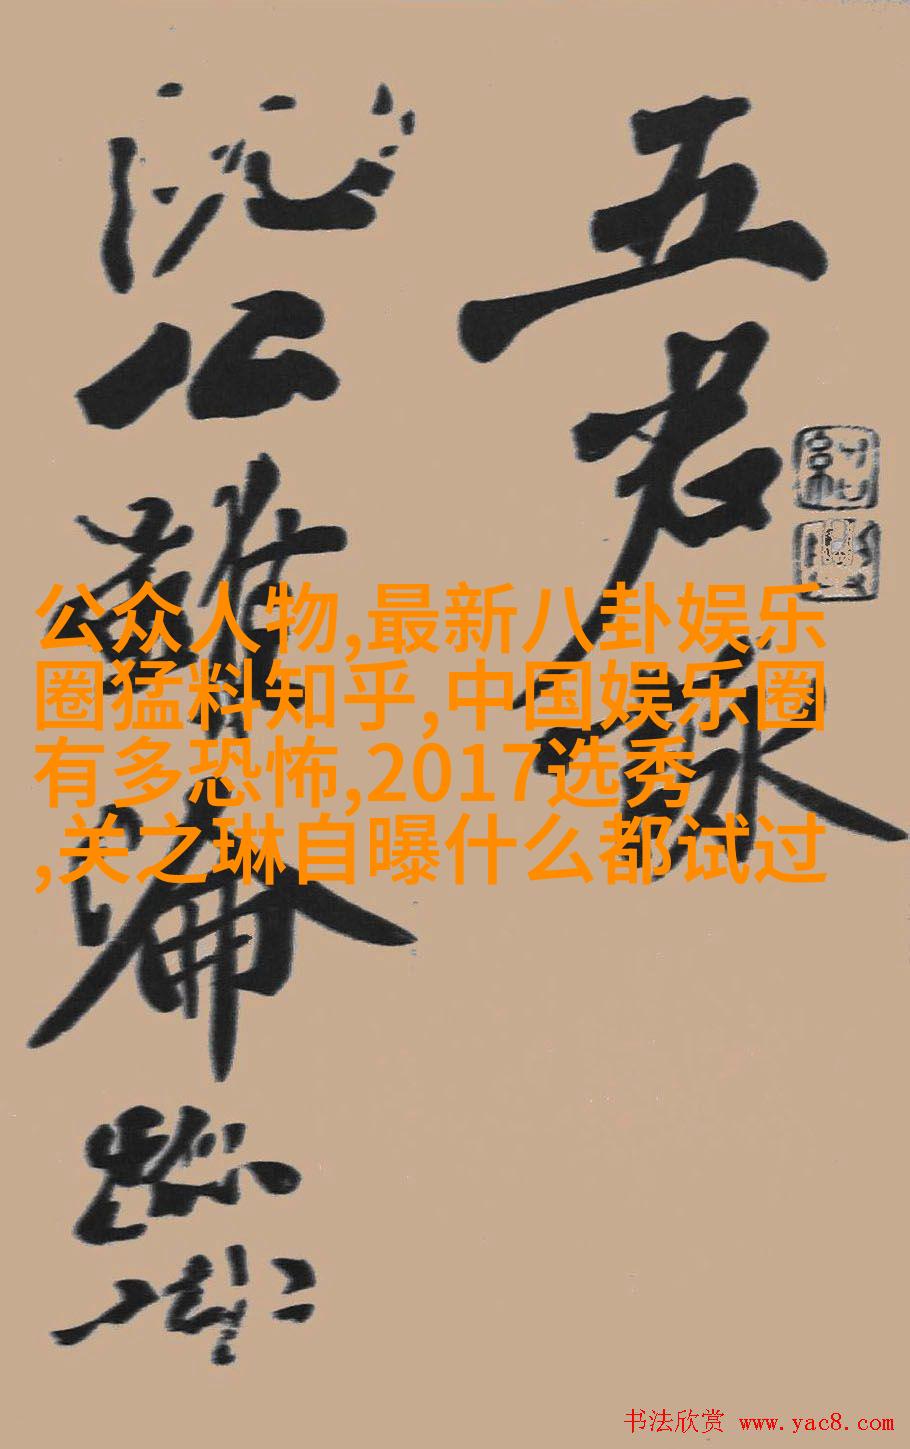 五君詠
阮公雖淪跡
公众人物,最新八卦娱乐
圈猛料知乎,中国娱乐圈
有多恐怖,2017选秀
,关之琳自曝什么都试过
书法欣赏 www.yac8.com